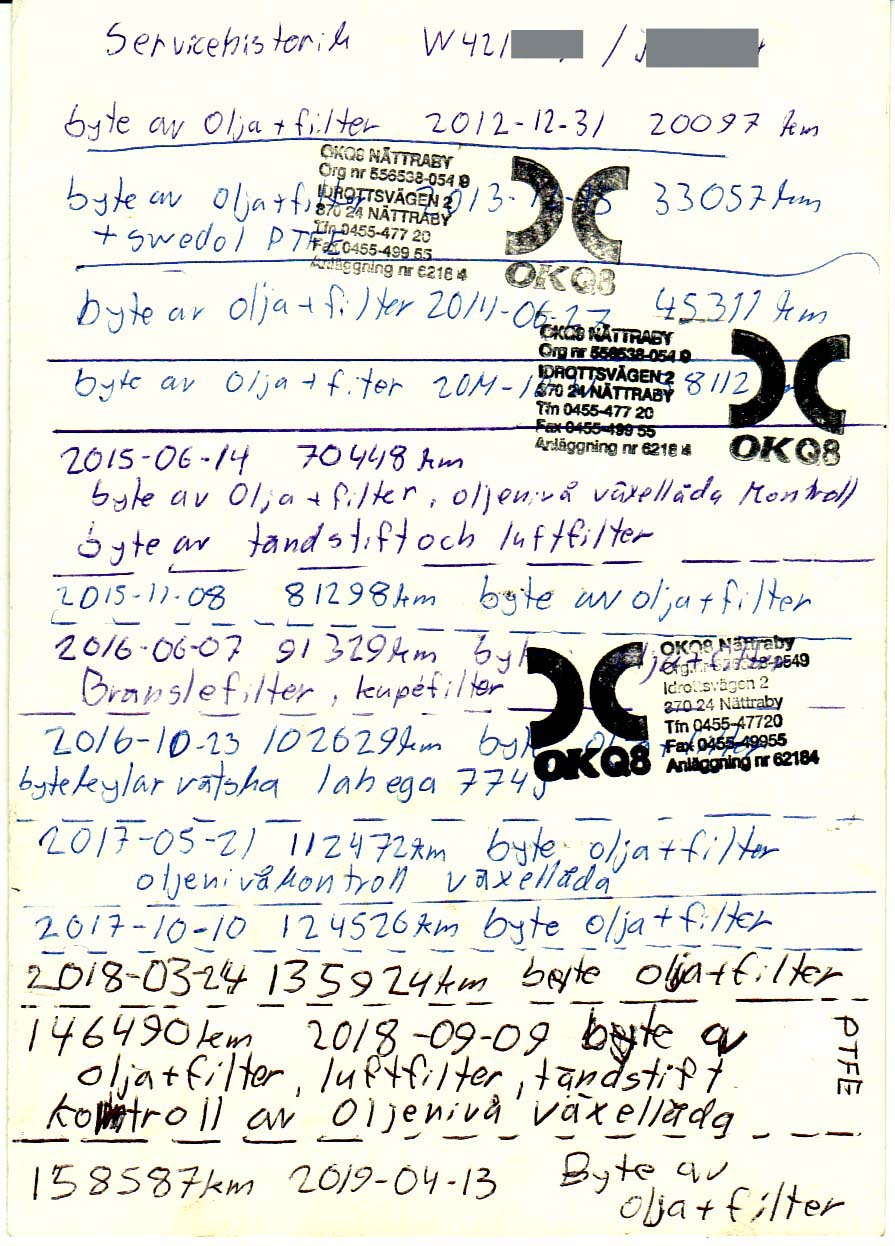 Servicehistorik W421 /
byte av olja + filter 2012-12-31 20097 km
OKQ8 NÄTTRABY
Org nr 556538-054 9
IDROTTSVÄGEN 2
370 24 NÄTTRABY
Tfn 0455-477 20
Fax 0455-499 55
Anläggning nr 6218 4
OKQ8
byte av olja + filter 2013-12-15 33057 km
+ swedol PTFE
byte av olja + filter 2014-06-27 45311 km
OKQ8 NÄTTRABY
Org nr 556538-054 9
IDROTTSVÄGEN 2
370 24 NÄTTRABY
Tfn 0455-477 20
Fax 0455-499 55
Anläggning nr 6218 4
OKQ8
byte av olja + filter 2014- 8112
2015-06-14 70448 km
byte av olja + filter, oljenivå växellåda kontroll
byte av tändstift och luftfilter
2015-11-08 81298 km byte av olja + filter
2016-06-07 91329 km byte olja + filter
Bränslefilter, kupéfilter
OKQ8
OKQ8 Nättraby
Org.nr 556538-0549
Idrottsvägen 2
370 24 Nättraby
Tfn 0455-47720
Fax 0455-49955
Anläggning nr 62184
2016-10-23 102629 km byte olja + filter
byte kylar vätska lahega 774
2017-05-21 112472 km byte olja + filter
oljenivåkontroll växellåda
2017-10-10 124526 km byte olja + filter
2018-03-24 135924 km byte olja + filter
146490 km 2018-09-09 byte av
olja + filter, luftfilter, tändstift
kontroll av oljenivå växellåda
PTFE
158587 km 2019-04-13 Byte av
olja + filter